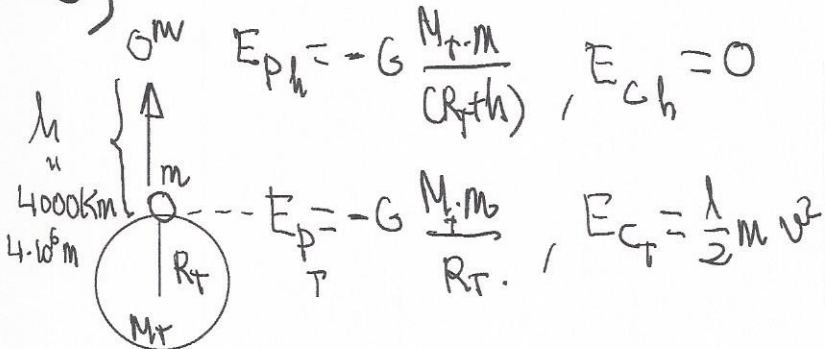 )
m E_{Ph} = -G \frac{M_T.m}{(R_T+h)} , E_{Ch} = 0
h
"
4000Km
4·10⁶m
m
E_{P_T} = -G \frac{M_T.m}{R_T.} , E_{C_T} = \frac{1}{2} m v²
R_T
M_T